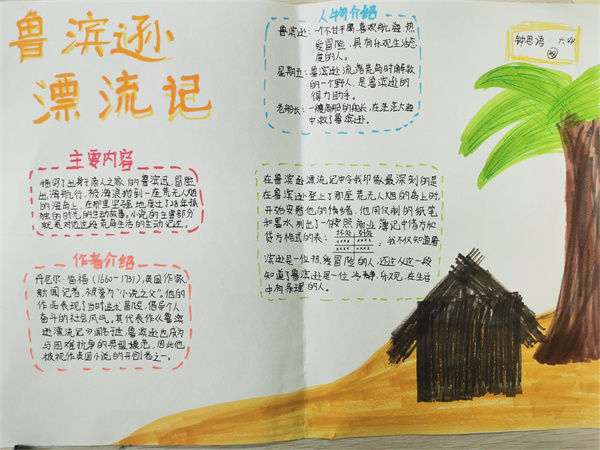 鲁滨逊
漂流记
主要内容
描写了出身于商人之家的鲁滨逊,冒险
出海航行,被海浪抛到一座荒无人烟
的孤岛上,在那里坚强地度过了28年孤
独的时光的生动故事。小说的主要部分
就是对他这段荒岛生活的生动记述。
作者介绍
丹尼尔·笛福(1660-1731),英国作家
新闻记者,被誉为“小说之父”。他的
作品表现了当时追求冒险,倡导个人
奋斗的社会风气。其代表作《鲁滨
逊漂流记》闻名于世,鲁滨逊也成为
与困难抗争的典型模范,因此他
被视作英国小说的开创者之一。
人物介绍
鲁滨逊:一个不甘平庸,喜欢航海,热
爱冒险,具有乐观生活态
度的人。
星期五:鲁滨逊流落荒岛时解救
的一个野人,是鲁滨逊的
得力助手。
老船长:一艘商船的船长,在茫茫大海
中救了鲁滨逊。
在鲁滨逊漂流记中令我印象最深刻的是
在鲁滨逊登上了那座荒无人烟的岛上时,
开始安慰他的情绪,他用仅剩的纸笔
和墨水列出了一个按照商业簿记中借方和
贷方格式的表:
坏处 好处
xxxx xxxx
xxxx xxxx
。我不仅知道鲁
滨逊是一位热爱冒险的人,还从这一段
知道了鲁滨逊是一位冷静,乐观,在生活
中有条理的人。
钟思语 六(4)